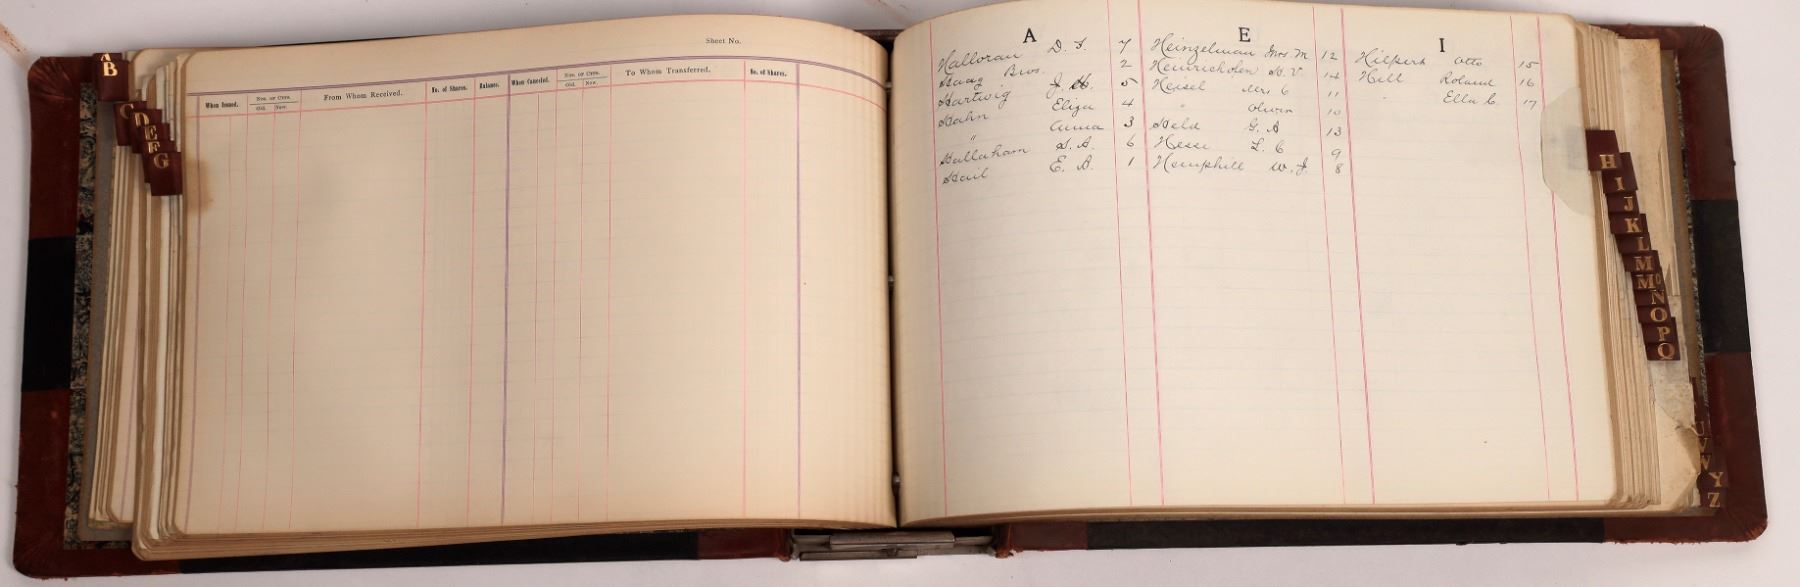 Sheet No.
When Issued. Nos. of Certs. Old. New. From Whom Received. No. of Shares. Balance. When Canceled. Nos. of Certs. Old. New. To Whom Transferred. No. of Shares.
A E I
Halloran D. F. 7 Heinzelman Mrs. M 12 Hilpert Otto 15
Haag Bros. 2 Heinrichofen H. V 14 Hill Roland 16
Hartwig J. H. 5 Heisel Mrs C 11 " Ella C. 17
Hahn Eliza 4 " Oliver 10
" Anna 3 Held G. A 13
Hallaham S. A. 6 Hesse L. C 9
Hail E. A. 1 Hemphill W. J. 8
A
B
C
D
E
F
G
H
I
J
K
L
M
Mc
N
O
P
Q
U
V
W
Y
Z